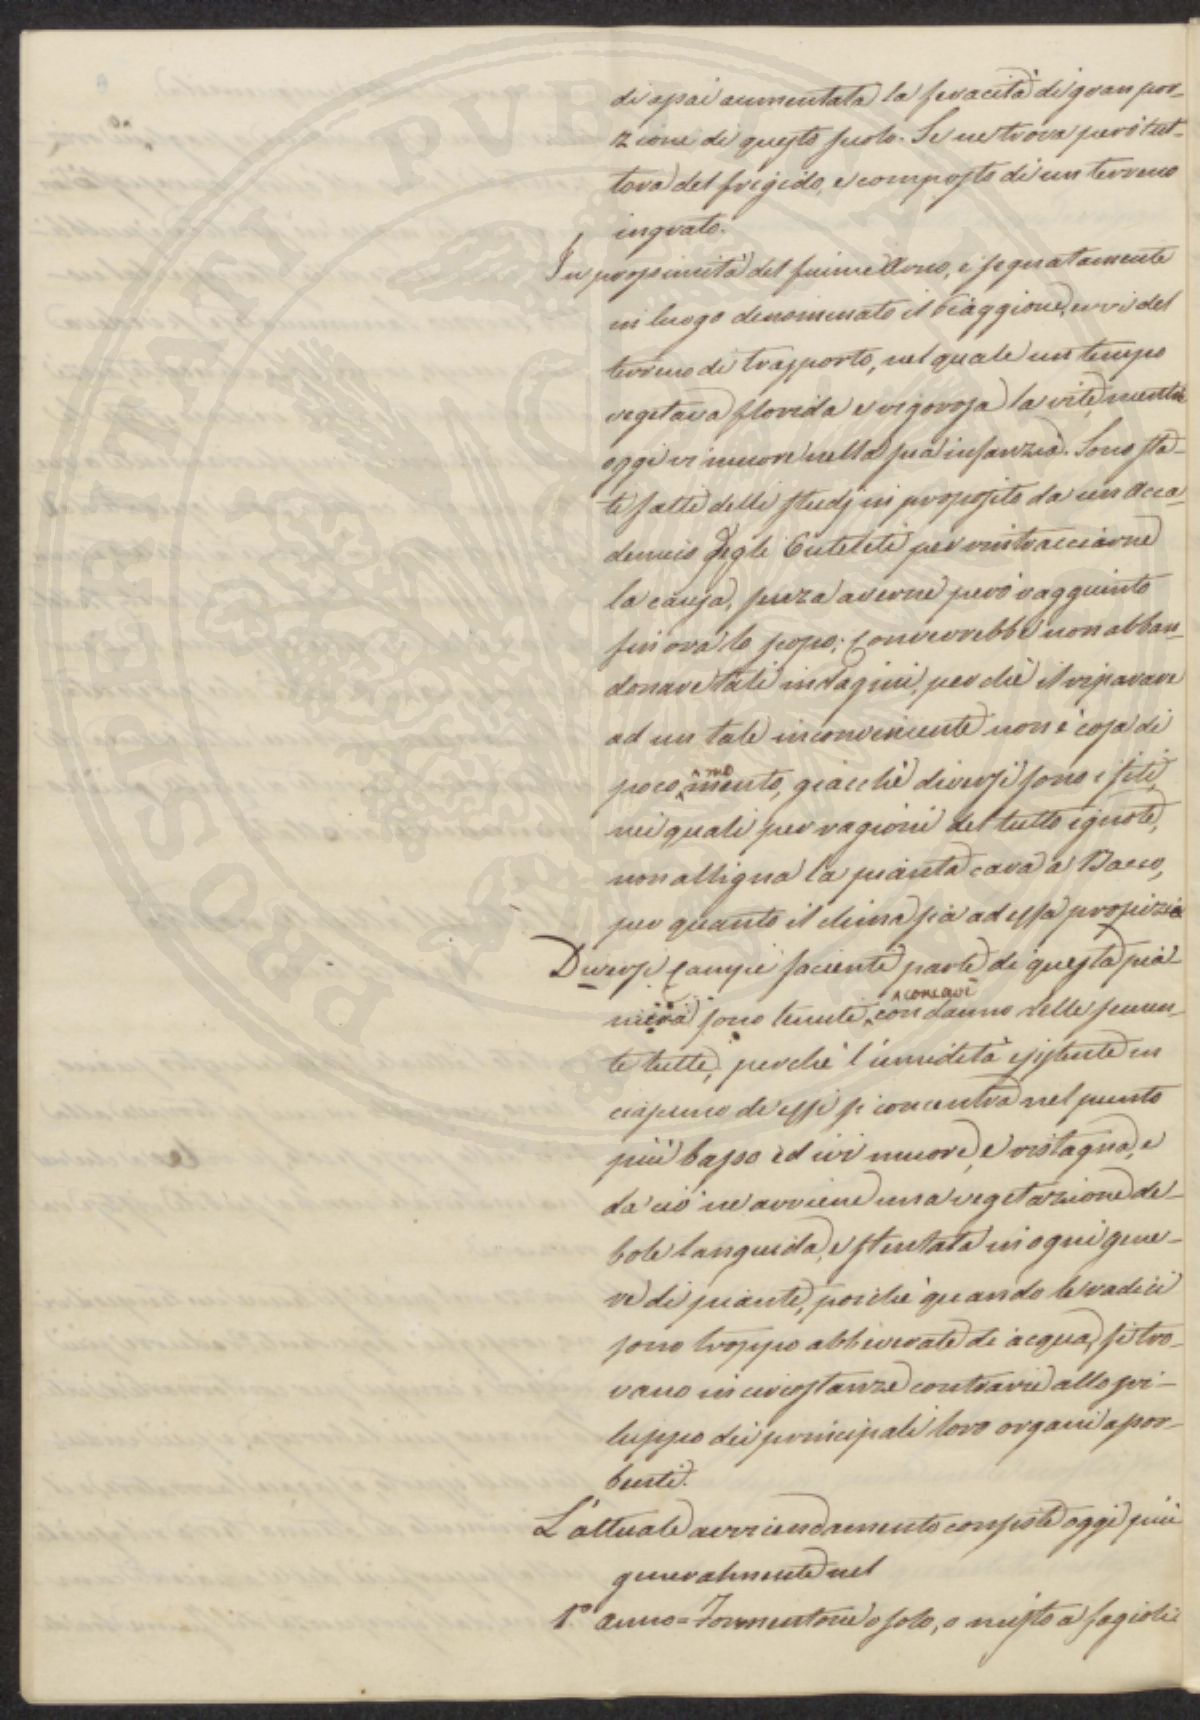 di assai aumentata la feracità di gran por-
zione di questo suolo. Se ne trova però tut-
tora del frigido, e composto di un terreno
ingrato.
In prossimità del fiume Arno, e segnatamente
in luogo denominato il Piaggione, evvi del
terreno di trasporto, nel quale un tempo
vegetava florida e vigorosa la vite, mentre
oggi vi muore nella sua infanzia. Sono sta-
ti fatti delli studj in proposito da un Acca-
demico degli Euteleti per rintracciarne
la causa, senza averne però raggiunto
fin ora lo scopo; Converrebbe non abban-
donare tali indagini, perchè il riparare
ad un tale inconveniente non è cosa di
poco momento, giacchè diversi sono i siti,
nei quali per ragioni del tutto ignote,
non alligna la pianta cara a Bacco,
per quanto il clima sia ad essa propizio
Diversi Campi facienti parte di questa pia-
nura sono tenuti concavi con danno delle semen-
te tutte, perchè l'umidità esistente in
ciascuno di essi si concentra nel punto
più basso ed ivi muore, e ristagna, e
da ciò ne avviene una vegetazione de-
bole languida, e stentata in ogni gene-
re di piante, poichè quando le radici
sono troppo abbeverate di acqua, si tro-
vano in circostanze contrarie allo svi-
luppo dei principali loro organi assor-
benti.
L'attuale avvicendamento consiste oggi più
generalmente nel
1.° anno = Formentone o solo, o misto a fagioli
PROSPERITATI PVBLICAE